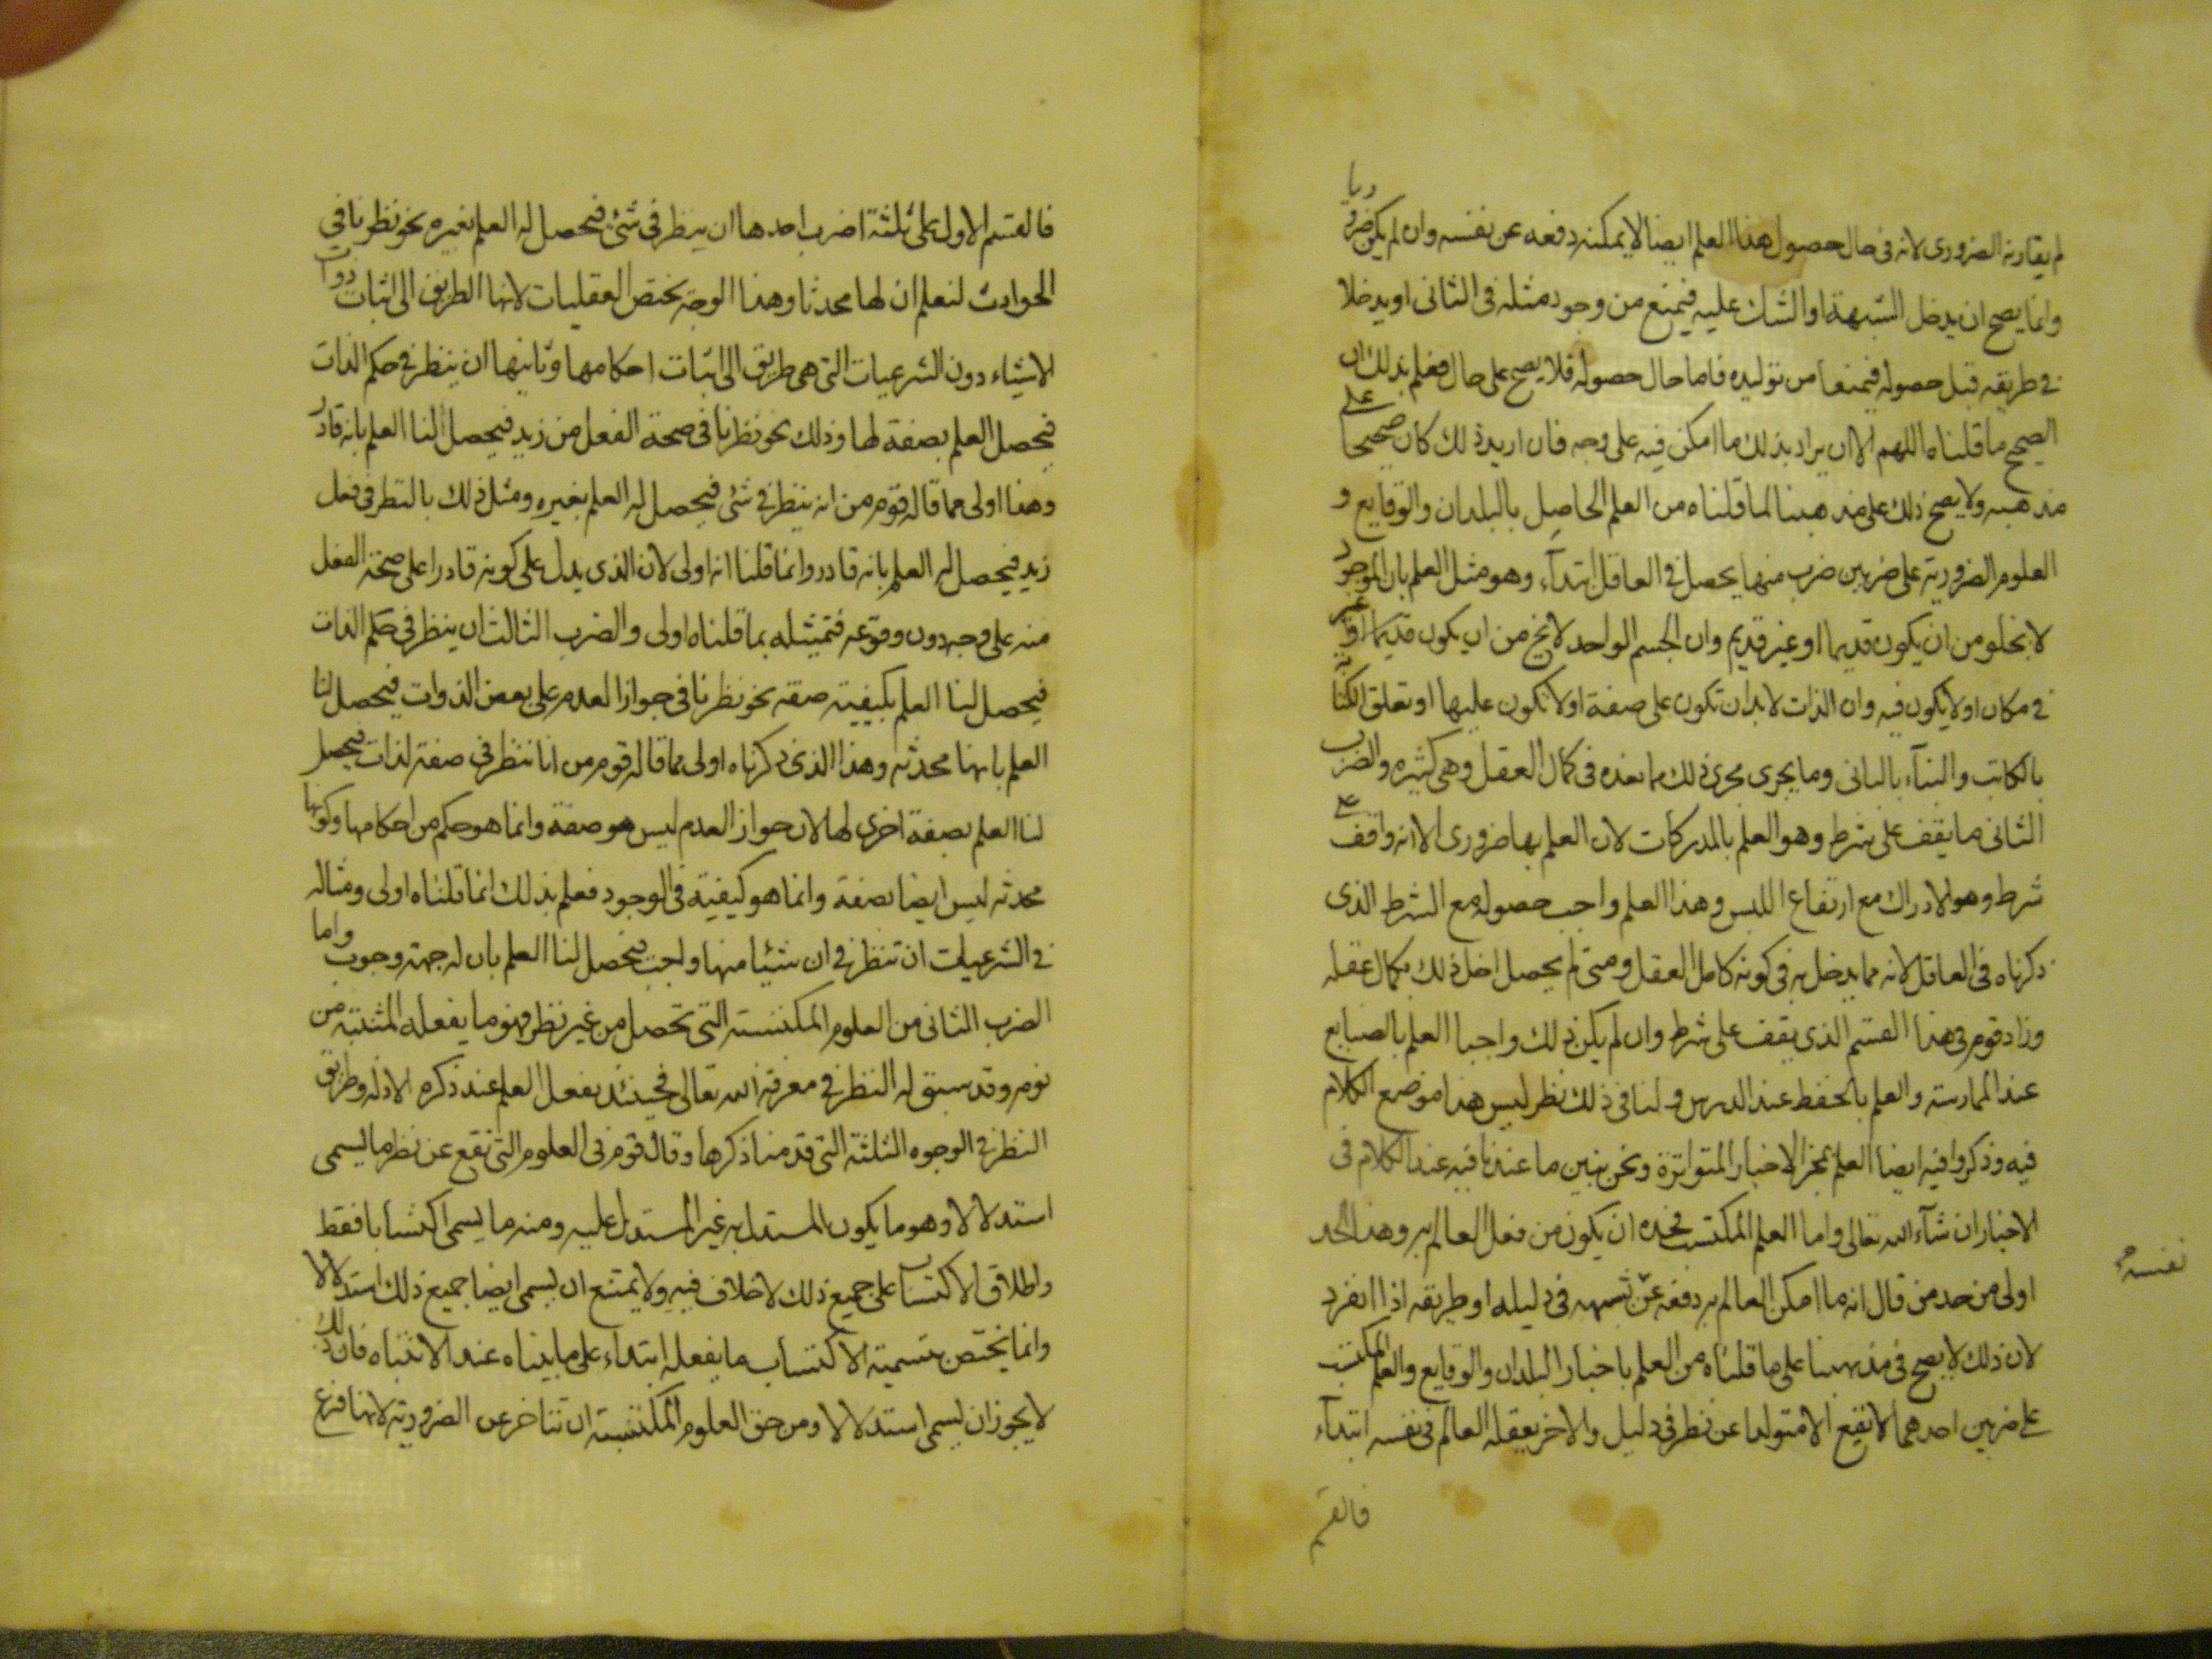 لم يقارنه الضروري لانه في حال حصول هذا العلم ايضا لا يمكنه دفعه عن نفسه وان لم يكن ضروريا
وانما يصح ان يدخل الشبهة او الشك عليه فيمنع من وجود مثله في الثاني او يدخلا
في طريقه قبل حصوله فيمنعا من توليده فاما حال حصوله فلا يصح على حال فعلم بذلك ان
الصحيح ما قلناه اللهم الا ان يراد بذلك ما امكن فيه على وجه فان اريد ذلك كان صحيحا على
مذهبه ولا يصح ذلك على مذهبنا لما قلناه من العلم الحاصل بالبلدان والوقايع و
العلوم الضرورية على ضربين ضرب منها يحصل في العاقل ابتدآء وهو مثل العلم بان الموجود
لا يخلو من ان يكون قديما او غير قديم وان الجسم الواحد لا يخ من ان يكون قديما او غير
في مكان او لا يكون فيه وان الذات لا بد ان تكون على صفة او لا تكون عليها او تعلق الكتابة
بالكاتب والبنآء بالباني وما يجرى مجرى ذلك مما بعده في كمال العقل وهى كثيره والضرب
الثاني ما يقف على شرط وهو العلم بالمدركات لان العلم بها ضروري الا انه واقف على
شرط وهو الادراك مع ارتفاع اللبس وهذا العلم واجب حصوله مع الشرط الذى
ذكرناه في العاقل لانه مما يدخل به في كونه كامل العقل ومتى لم يحصل اخل ذلك بكمال عقله
وزاد قوم في هذا القسم الذى يقف على شرط وان لم يكن ذلك واجبا العلم بالصنايع
عند الممارسة والعلم بالحفظ عند الدرس ولنا في ذلك نظر ليس هذا موضع الكلام
فيه وذكروا فيه ايضا العلم بمخبر الاخبار المتواترة ونحن نبين ما عندنا فيه عند الكلام في
الاخبار ان شآء الله تعالى واما العلم المكتسب فحده ان يكون من فعل العالم به وهذا الحد
اولى من حد من قال انه ما امكن العالم به دفعه عن نفسه بشبهه في دليله او طريقه اذا انفرد
لان ذلك لا يصح في مذهبنا على ما قلناه من العلم باخبار البلدان والوقايع والعلم المكتسب
على ضربين احدهما لا يقع الا متولدا عن نظر في دليل والاخر يفعله العالم في نفسه ابتدآء
فالقسم
فالقسم الاول على ثلثة اضرب احدها ان ينظر في شئ فيحصل له العلم بغيره نحو نظرنا في
الحوادث لنعلم ان لها محدثا وهذا الوجه يختص العقليات لانها الطريق الى اثبات ذوات
الاشياء دون الشرعيات التى هى طريق الى اثبات احكامها وثانيها ان ينظر في حكم الذات
فيحصل العلم بصفة لها وذلك نحو نظرنا في صحة الفعل من زيد فيحصل لنا العلم بانه قادر
وهذا اولى مما قاله قوم من انه ينظر في شئ فيحصل له العلم بغيره ومثل ذلك بالنظر في فعل
زيد فيحصل له العلم بانه قادر وانما قلنا انه اولى لان الذى يدل على كونه قادرا على صحة الفعل
منه على وجه دون وقوعه فتمثيله بما قلناه اولى والضرب الثالث ان ينظر في حكم الذات
فيحصل لنا العلم بكيفية صفة نحو نظرنا في جواز العدم على بعض الذوات فيحصل لنا
العلم بانها محدثه وهذا الذى ذكرناه اولى مما قاله قوم من انا ننظر في صفة لذات فيحصل
لنا العلم بصفة اخرى لها لان جواز العدم ليس هو صفة وانما هو حكم من احكامها وكونها
محدثه ليس ايضا بصفة وانما هو كيفية في الوجود فعلم بذلك انما قلناه اولى ومثاله
في الشرعيات ان ننظر في ان شيئا منها واجب فيحصل لنا العلم بان له جهة وجوب واما
الضرب الثاني من العلوم المكتسبة التى تحصل من غير نظر فهو ما يفعله المنتبه من
نومه وقد سبق له النظر في معرفة الله تعالى فحينئذ يفعل العلم عند ذكره الادلة وطريق
النظر في الوجوه الثلثة التى قدمنا ذكرها وقال قوم في العلوم التى تقع عن نظر ما يسمى
استدلالا وهو ما يكون المستدل به غير المستدل عليه ومنه ما يسمى اكتسابا فقط
واطلاق الاكتساب على جميع ذلك لا خلاف فيه ولا يمتنع ان يسمى ايضا جميع ذلك استدلالا
وانما يختص بتسمية الاكتساب ما يفعله ابتداء على ما بيناه عند الانتباه فان ذلك
لا يجوز ان يسمى استدلالا ومن حق العلوم المكتسبة ان تتاخر عن الضرورية لانها فرع